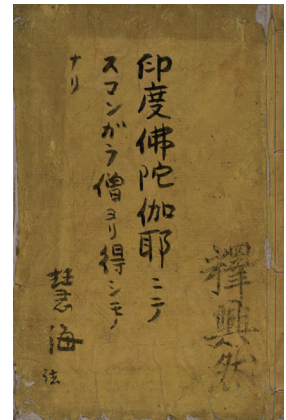 印度佛陀伽耶ニテ
スマンガラ僧ヨリ得シモノ
ナリ
慧海
釋興然